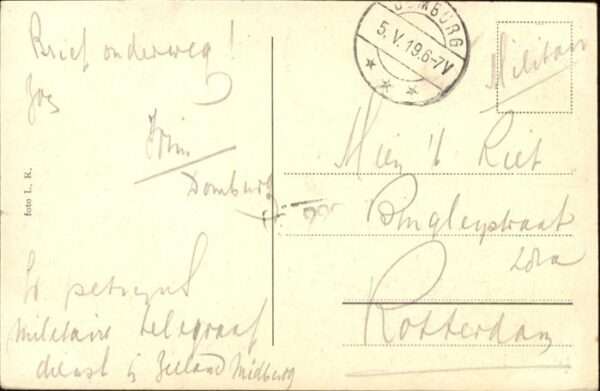 Brief onderweg!
Jos
Domburg
foto L. K.
militaire telegraaf
dienst in Zeeland Midburg
DOMBURG
5.V.19.6-7V
Militair
Mien 't Riet
Bingleystraat
Rotterdam